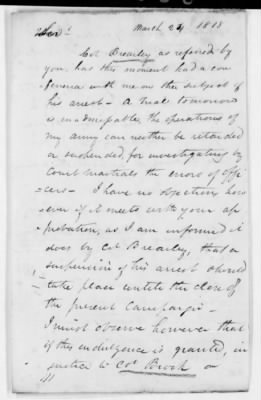 March 24 1818
Sir
Col Brearley as referred by
you, has this moment had a con
ference with me on the subject of
his arrest - A trial tomorrow
is inadmissable, the operations of
my army can neither be retarded
or suspended, for investigating by
Court martials the errors of offi
cers - I have no objection, how
ever if it meets with your ap
probation, as I am informed it
does by Col Brearley, that a
suspension of his arrest should
take place untill the close of
the present Campaign -
I must observe however that
if this indulgence is granted, in
justice to Col Brock or